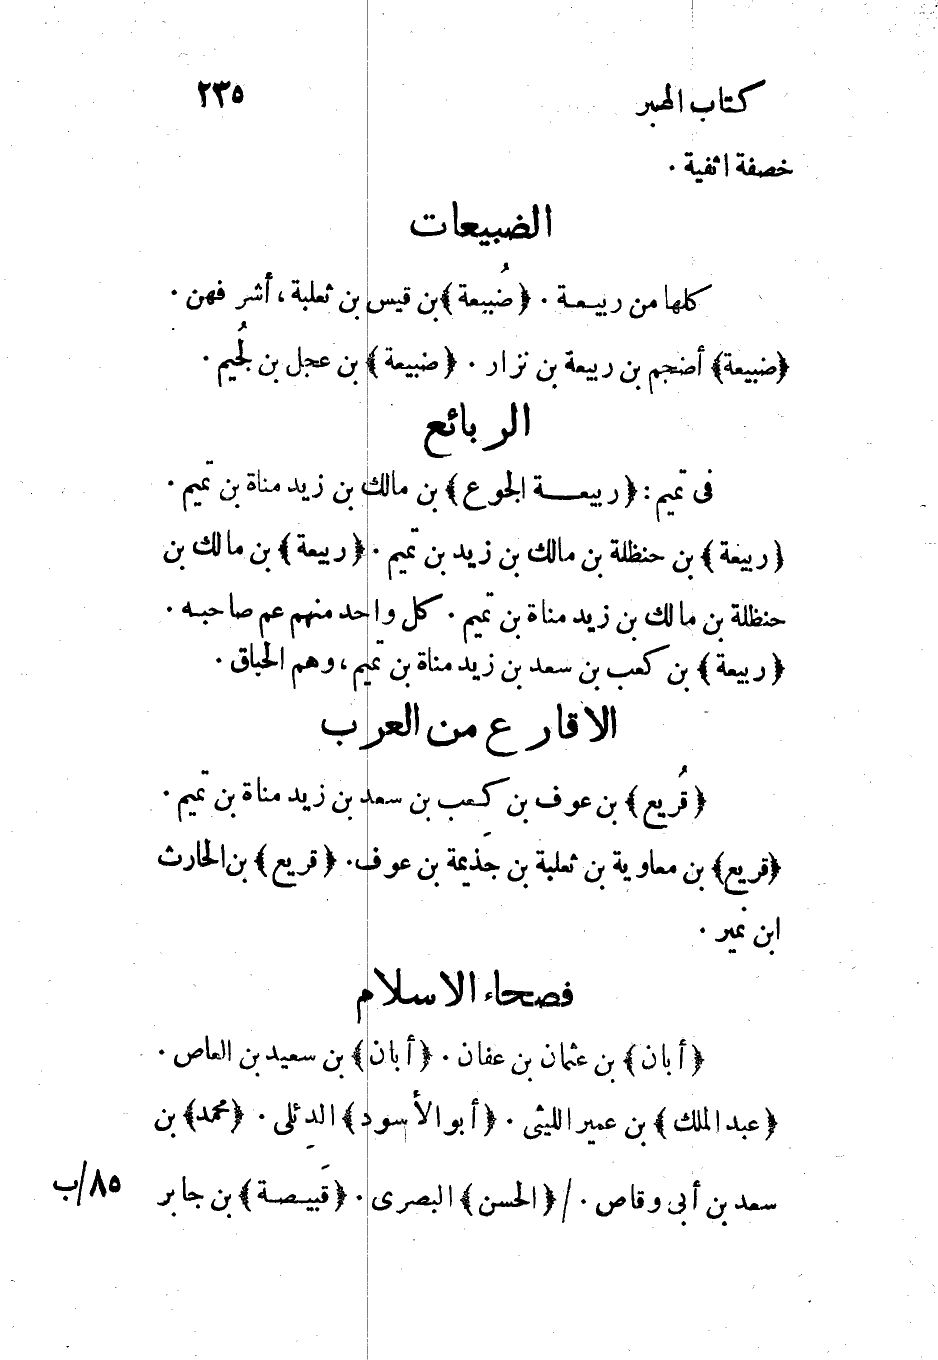 كتاب المحبر ٢٣٥
خصفة اثفية .
الضبيعات
كلها من ربيعة . ﴿ضُبيعة﴾ بن قيس بن ثعلبة ، أشر فهن .
﴿ضبيعة﴾ أضجم بن ربيعة بن نزار . ﴿ضبيعة﴾ بن عجل بن لُجيم .
الربائع
فى تميم : ﴿ربيعة الجوع﴾ بن مالك بن زيد مناة بن تميم .
﴿ربيعة﴾ بن حنظلة بن مالك بن زيد بن تميم . ﴿ربيعة﴾ بن مالك بن
حنظلة بن مالك بن زيد مناة بن تميم . كل واحد منهم عم صاحبه .
﴿ربيعة﴾ بن كعب بن سعد بن زيد مناة بن تميم ، وهم الحباق .
الاقارع من العرب
﴿قُريع﴾ بن عوف بن كعب بن سعد بن زيد مناة بن تميم .
﴿قريع﴾ بن معاوية بن ثعلبة بن جَذيمة بن عوف . ﴿قريع﴾ بن الحارث
ابن نُمير .
فصحاء الاسلام
﴿أبان﴾ بن عثمان بن عفان . ﴿أبان﴾ بن سعيد بن العاص .
﴿عبد الملك﴾ بن عمير الليثى . ﴿أبو الأسود﴾ الدئلى . ﴿محمد﴾ بن
سعد بن أبى وقاص . / ﴿الحسن﴾ البصرى . ﴿قَبيصة﴾ بن جابر ٨٥/ب